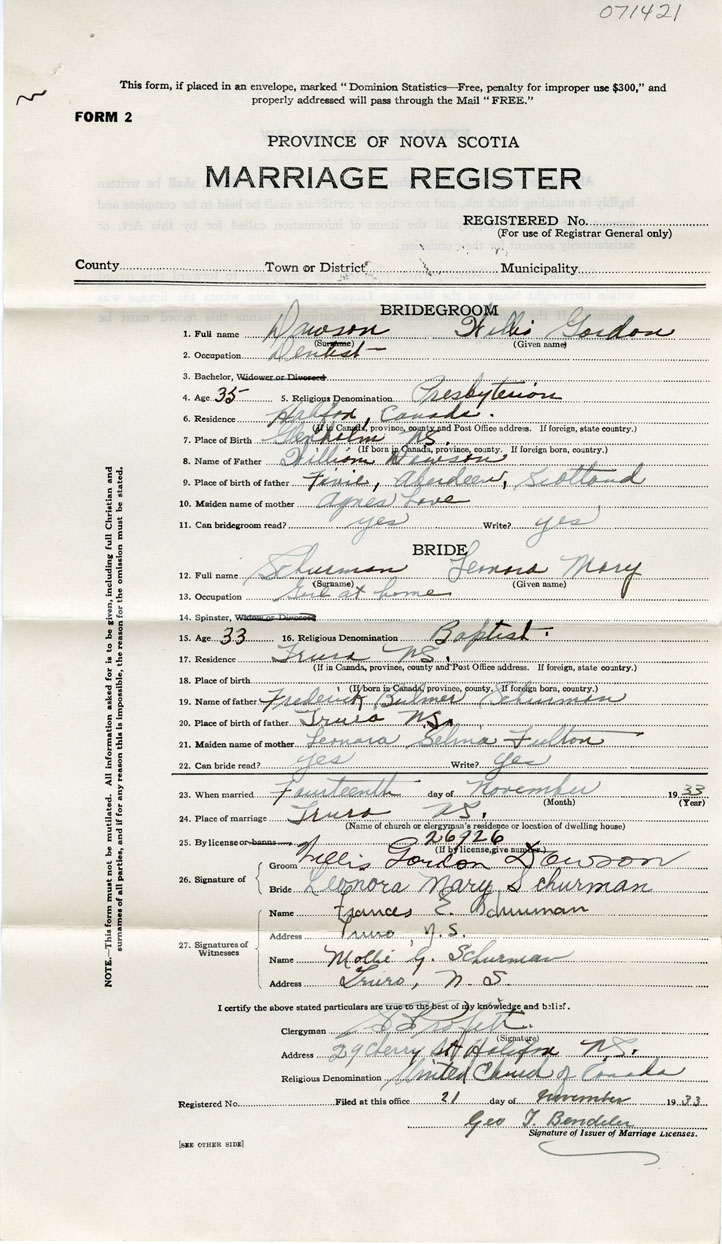 071421
This form, if placed in an envelope, marked "Dominion Statistics—Free, penalty for improper use $300," and
properly addressed will pass through the Mail "FREE."
FORM 2
PROVINCE OF NOVA SCOTIA
MARRIAGE REGISTER
REGISTERED No.
(For use of Registrar General only)
County Town or District Municipality
BRIDEGROOM
1. Full name Dawson Willis Gordon
(Surname) (Given name)
2. Occupation Dentist
3. Bachelor, Widower or Divorced
4. Age 35 5. Religious Denomination Presbyterian
6. Residence Halifax, Canada.
(If in Canada, province, county and Post Office address. If foreign, state country.)
7. Place of Birth Glenholm N.S.
(If born in Canada, province, county. If foreign born, country.)
8. Name of Father William Dawson
9. Place of birth of father Aberdeen, Scotland
10. Maiden name of mother Agnes Love
11. Can bridegroom read? yes Write? yes
BRIDE
12. Full name Schurman Leonora Mary
(Surname) (Given name)
13. Occupation Girl at home
14. Spinster, Widow or Divorced
15. Age 33 16. Religious Denomination Baptist.
17. Residence Truro N.S.
(If in Canada, province, county and Post Office address. If foreign, state country.)
18. Place of birth
(If born in Canada, province, county. If foreign born, country.)
19. Name of father Frederick Bulmer Schurman
20. Place of birth of father Truro N.S.
21. Maiden name of mother Leonora Selma Fulton
22. Can bride read? yes Write? yes
23. When married Fourteenth day of November 1933
(Month) (Year)
24. Place of marriage Truro N.S.
(Name of church or clergyman's residence or location of dwelling house)
25. By license or banns 26926
(If by license, give number)
26. Signature of Groom Willis Gordon Dawson
Bride Leonora Mary Schurman
27. Signatures of Witnesses
Name Frances E. Schurman
Address Truro, N.S.
Name Mollie G. Schurman
Address Truro, N.S.
I certify the above stated particulars are true to the best of my knowledge and belief.
Clergyman
(Signature)
Address 29 Cherry St Halifax N.S.
Religious Denomination United Church of Canada
Registered No. Filed at this office 21 day of November 1933
Geo T.
Signature of Issuer of Marriage Licenses.
[SEE OTHER SIDE]
NOTE.—This form must not be mutilated. All information asked for is to be given, including full Christian and
surnames of all parties, and if for any reason this is impossible, the reason for the omission must be stated.